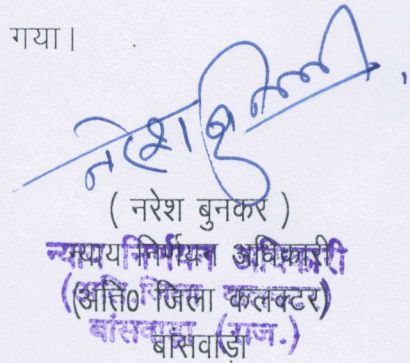 गया।
नरेश बुनकर
( नरेश बुनकर )
न्याय निर्णयन अधिकारी
(अति० जिला कलक्टर)
बांसवाड़ा (राज.)
बांसवाड़ा